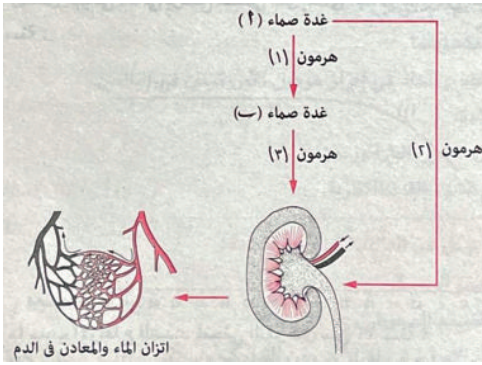 غدة صماء (أ)
هرمون (١)
غدة صماء (ب)
هرمون (٢)
هرمون (٣)
اتزان الماء والمعادن فى الدم